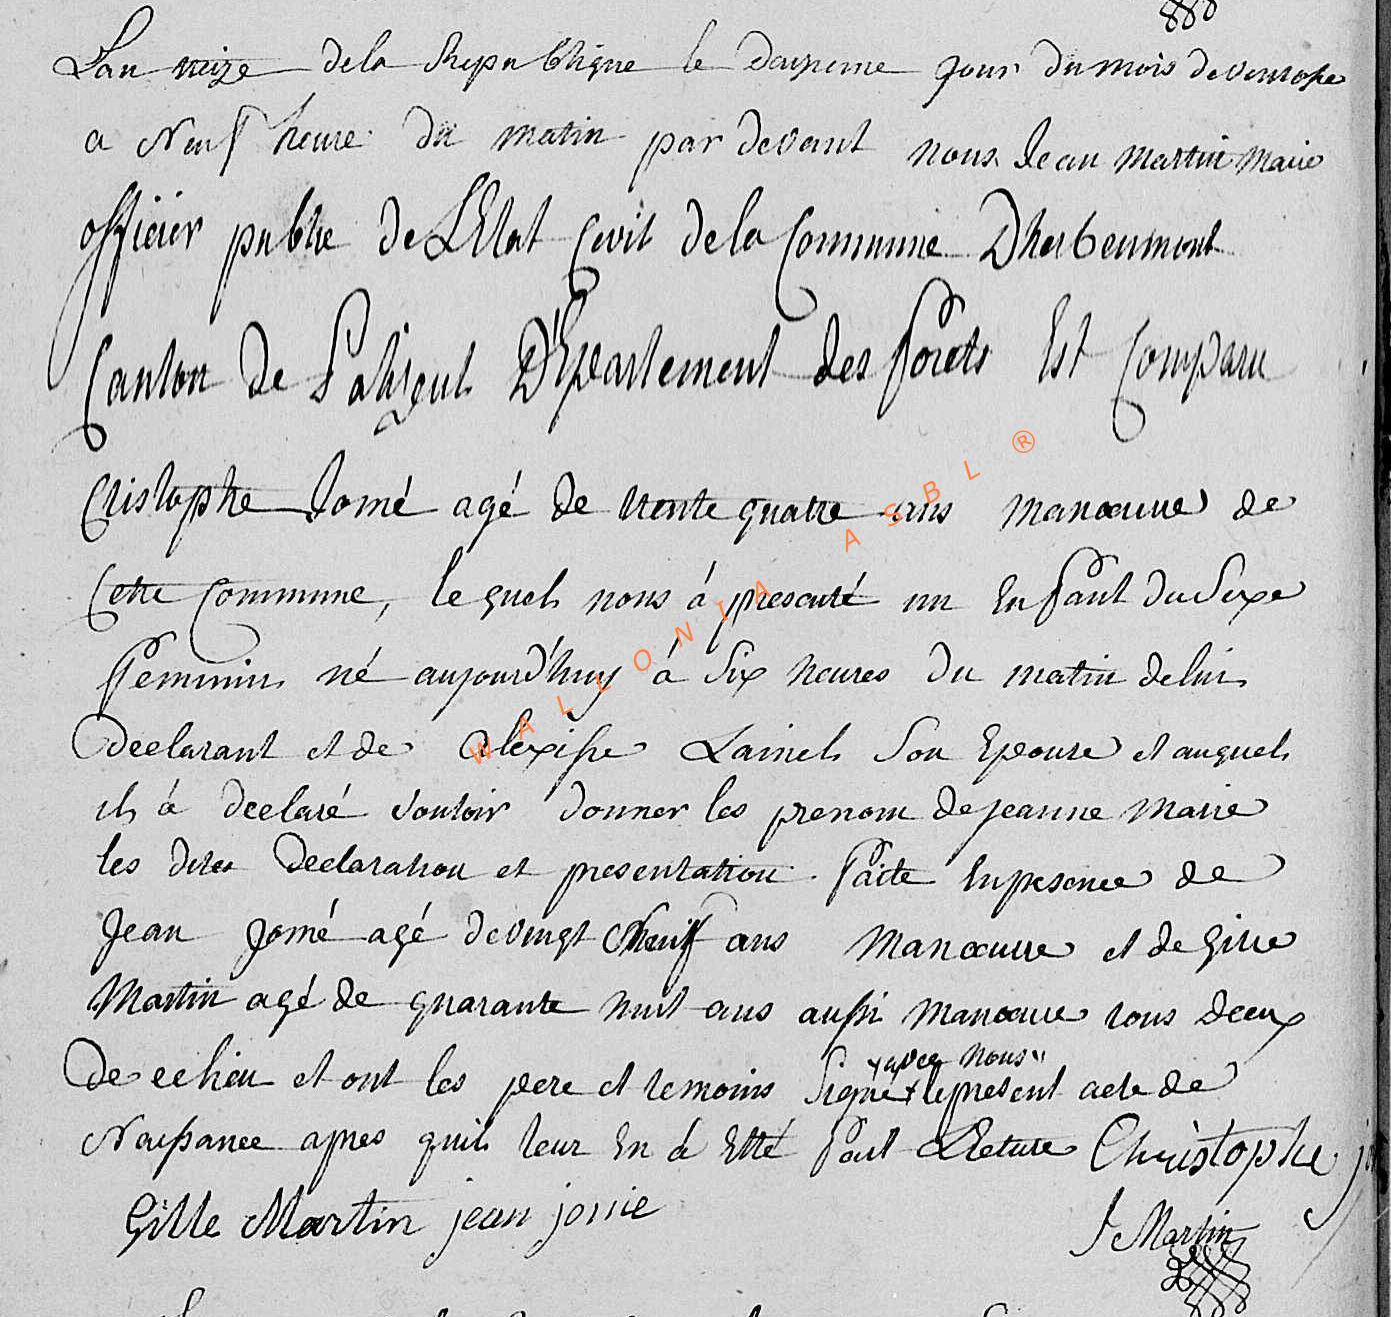 Lan treize dela Republique le douxieme jour du mois deventose
a Neuf heure du matin par devant nous Jean Martin Maire
officier publie de LEtat Civil dela Commune Dherbeumont
Canton de Paliseul D'Epartement des forets Est Comparu
Cristophe Jomé agé de trente quatre ans manœuvre de
Cette Commune, le quel nous á presenté un Enfant du Sexe
Feminin né aujourd'huy á Six heures du matin de lui
Declarant et de Alexisse Lainel Son Epouse et auquel
il á declaré vouloir donner les prenom de jeanne Marie
les dites Declaration et presentation faite Enpresence de
Jean Jomé agé devingt Neuf ans Manœuvre et de Gille
Martin agé de quarante huit ans aussi Manœuvre tous deux
+ avec nous "
de ce lieu et ont les pere et temoins Signé + le present acte de
Naissance apres quil leur En á Etté fait Lecture Christophe
Gille Martin jean jomé
J Martin
WALLONIA ASBL ®